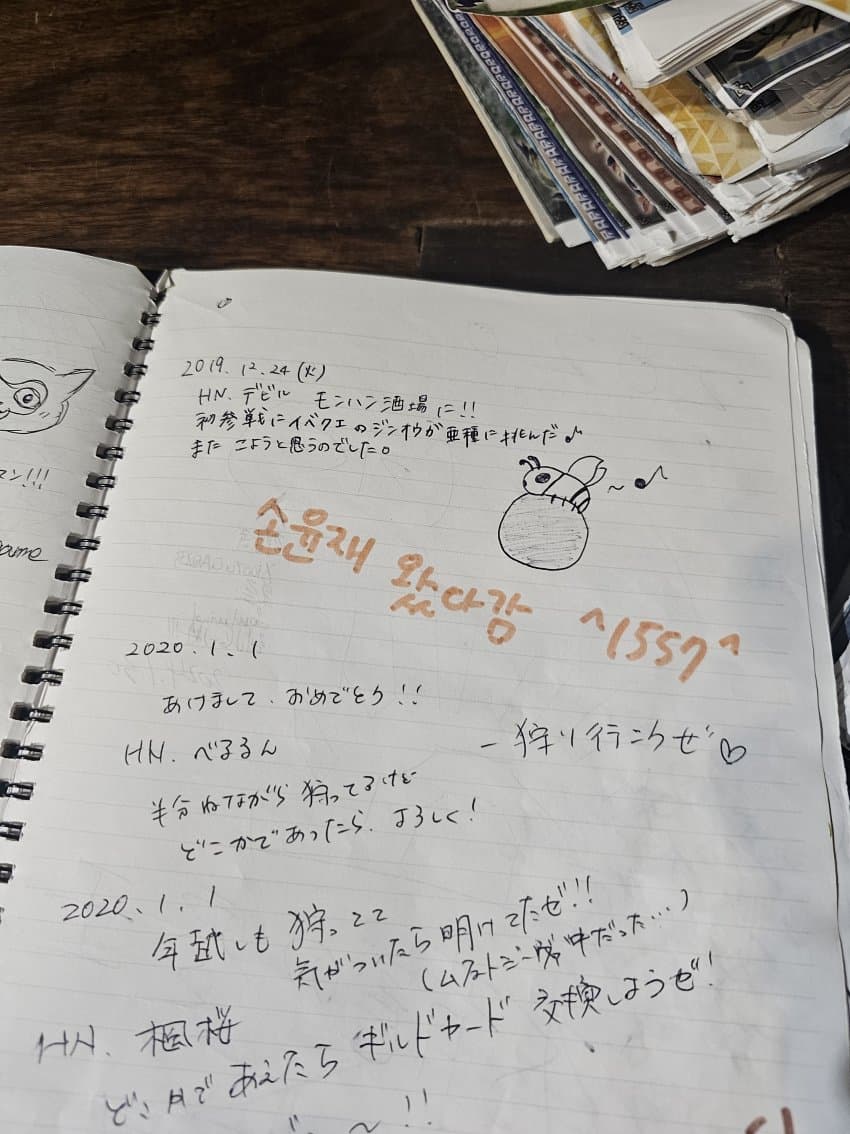 マン!!!
2019.12.24(火)
HN.デビル モンハン酒場に!!
初参戦にイベクエのジンオウガ亜種に挑んだ♪
また こようと思うのでした。
~♪
손윤재 왔다감 ^1557^
2020.1.1
あけまして.おめでとう!!
HN.べるるん
-狩り行こうぜ♡
半分ねながら 狩ってるけど
どこかであったら.よろしく!
2020.1.1
年越しも 狩ってて
気がついたら 明けてたぜ!!
(ムフェトジーヴァ中だった…)
HN. 楓桜
どこかで あえたら ギルドカード 交換しようぜ!
~!!